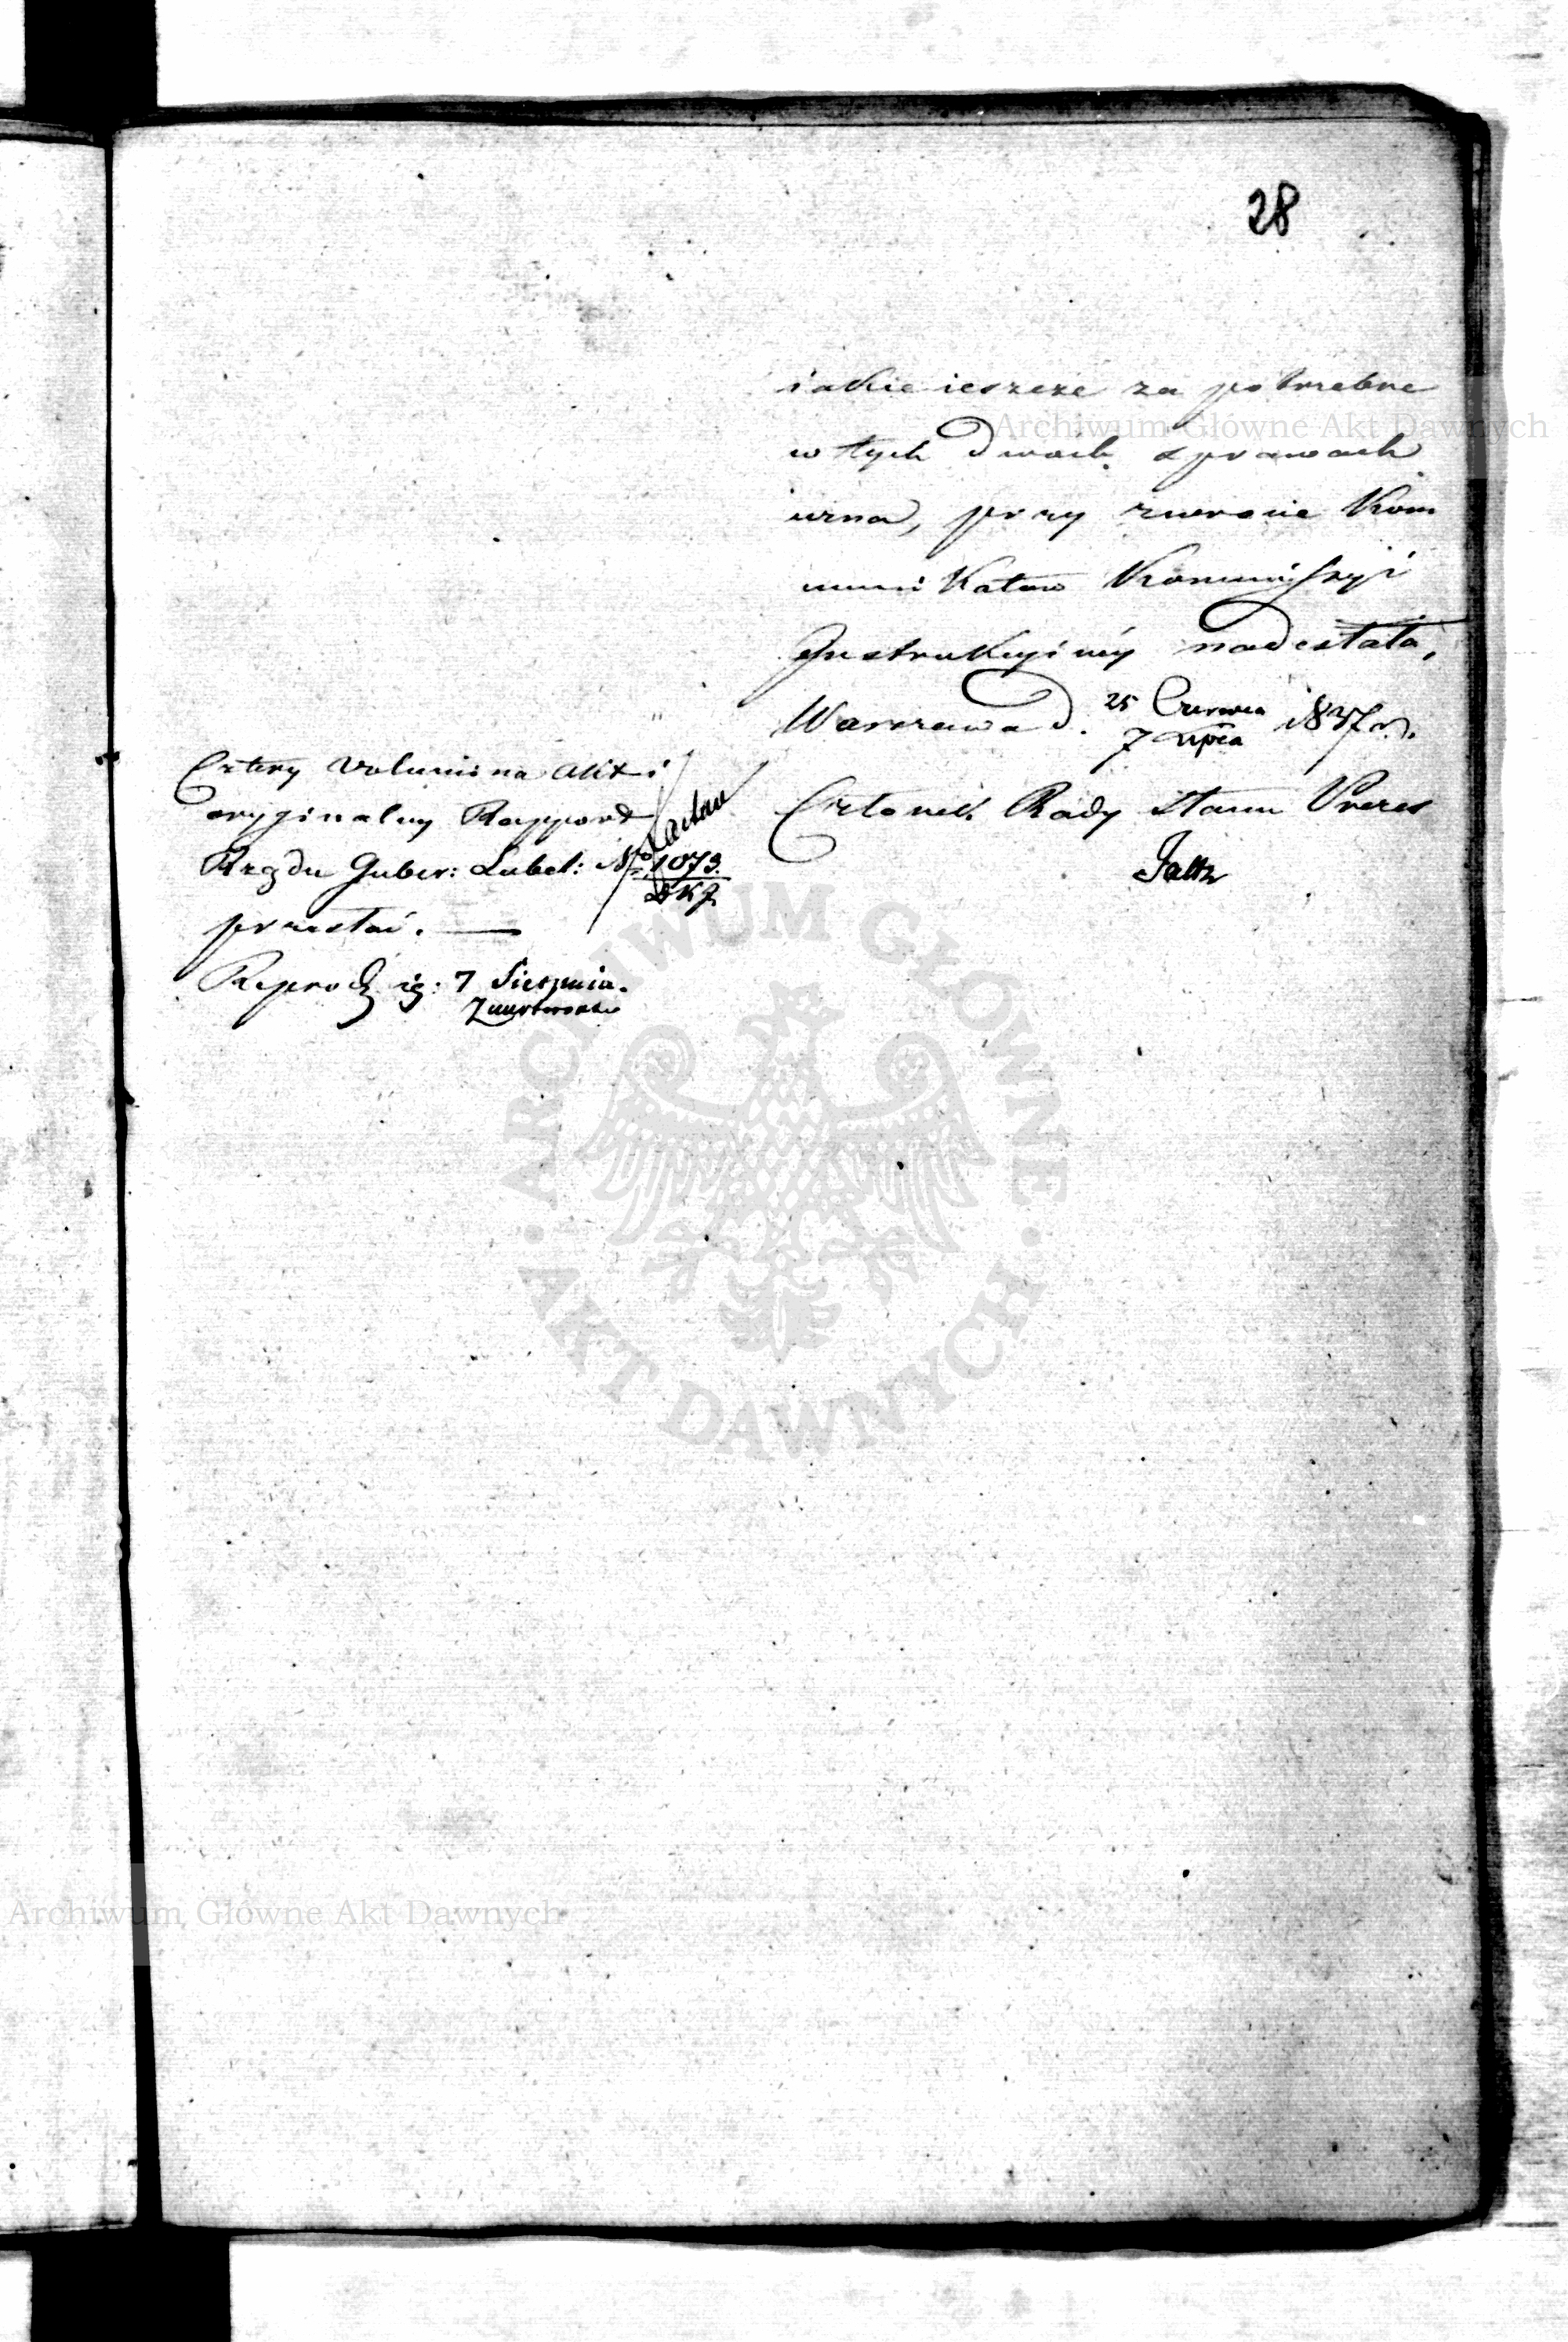 28
iakie ieszcze za potrzebne
w tych dwóch sprawach
uzna, przy zwrocie Kom
munikatow Kommissyi
Instrukcyiney nadesłała,
Warszawa d. 25 Czerwca / 7 Lipca 1837 r.
Członek Rady Stanu Prezes
Cztery Volumina Akt i
oryginalny Rapport
Rządu Guber: Lubel: No 1073
przesłać. —
Reprod. ig: 7 Sierpnia.
Archiwum Główne Akt Dawnych
ARCHIWUM GŁÓWNE
AKT DAWNYCH
Archiwum Główne Akt Dawnych